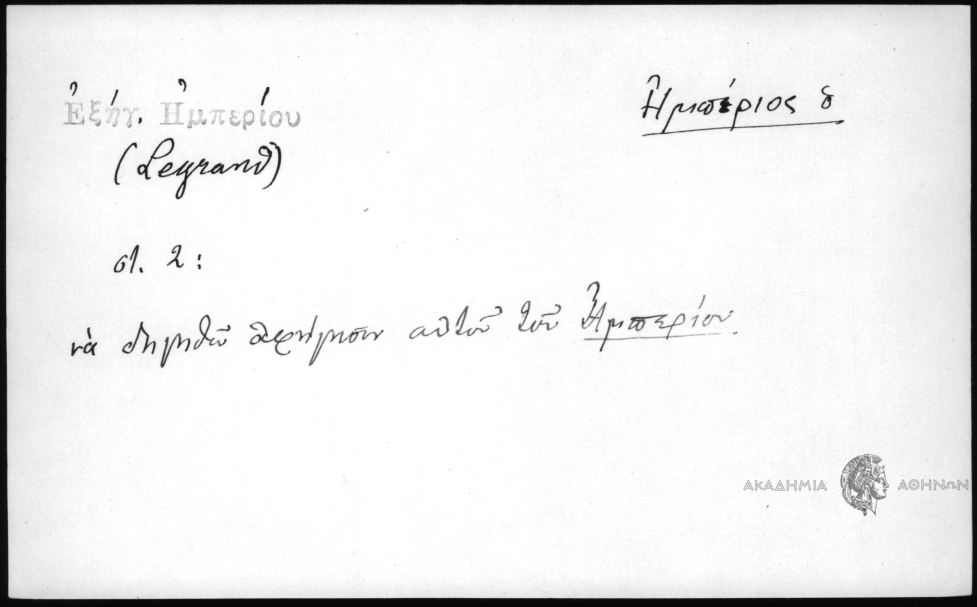 Ἐξήγ. Ἠμπερίου
Ἠμπέριος ὁ
(Legrand)
στ. 2:
νὰ διηγηθῶ ἀφήγησιν αὐτοῦ τοῦ Ἠμπερίου
ΑΚΑΔΗΜΙΑ ΑΘΗΝΩΝ